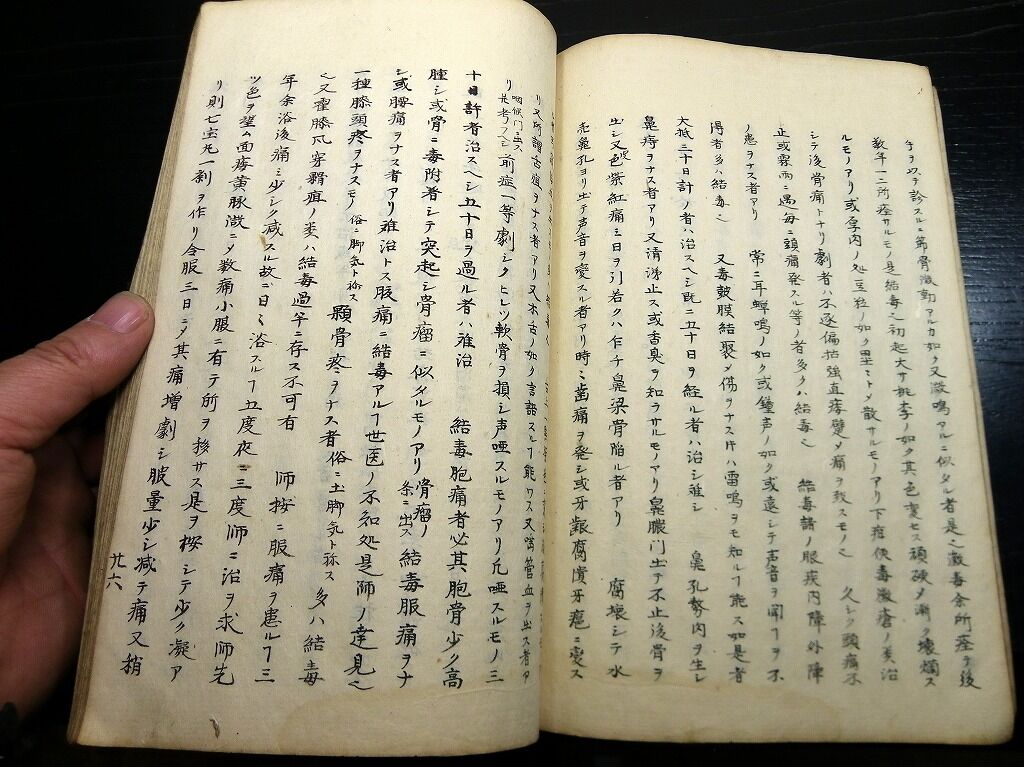 手ヲ以テ診スルニ筋骨微動アルカ如ク又微鳴アルニ似タル者是也黴毒余所瘥テ後
数年一二所痊サルモノ是結毒之初起大サ桃李ノ如ク其色変セス頑破メ漸ク壊爛ス
ルモノアリ或孕内ノ処豆粒ノ如ク里トメ散サルモノアリ下疳便毒黴瘡ノ類治
シテ後骨痛トナリ劇者ハ不遂偏拈強直痿躄メ痛ヲ致スモノ也 久シク頭痛不
止或雲雨ニ遇毎ニ頭痛発スル等ノ者多クハ結毒也 結毒翳ノ眼疾内障外障
ノ患ヲナス者アリ 常ニ耳蝉鳴ノ如ク或鐘声ノ如ク或遠シテ声音ヲ聞「ヲ不
得者多ハ結毒也 又毒鼓膜結聚メ傷ヲナス片ハ雷鳴ヲモ知ル「能ス如是者
大抵三十日計ノ者ハ治スヘシ既ニ五十日ヲ経ル者ハ治シ難シ 鼻孔瘜肉ヲ生シ
鼻痔ヲナス者アリ又清涕止ス或舌臭ヲ知ラサルモノアリ鼻膿門出テ不止後骨ヲ
生シ又色紫紅痛ミ日ヲ引若クハ作チ鼻梁骨陥ル者アリ 腐壊シテ水
売鼻孔ヨリ出テ声音ヲ変スル者アリ時々歯痛ヲ発シ或牙齦腐潰牙疤ニ変ス
リ又所謂舌疽ヲナス者アリ又木舌ノ如ク言語スル「能ワス又嗌管血ヲ出ス者ア
リ 咽候門出ス 是考フヘシ 前症一等劇シクヒレツ軟骨ヲ損シ声唖スルモノアリ凡唖スルモノ三
十日許者治スヘシ五十日ヲ過ル者ハ難治 結毒胞痛者必其胞骨少ク高
腫シ或骨ニ毒附着シテ突起シ骨瘤ニ似タルモノアリ 骨瘤ノ条ニ出ス 結毒服痛ヲナ
シ或腰痛ヲナス者アリ難治トス肢痛ニ結毒アル「世医ノ不知処是師ヲ達見也
一種膝頭疼ヲナスモノ 俗ニ脚気ト称ス 顆骨疼ヲナス者 俗ニ土脚気ト称ス 多ハ結毒
也又癨膝風穿額疽ノ类ハ結毒過半ニ存ス不可有 師按ニ服痛ヲ患ル「三
年余浴後痛ミ少シク减スル故ニ日々浴スル「五度夜ニ三度師ニ治ヲ求師先
ツ色ヲ望ム面痿黄脉微ニメ数痛小腹ニ有テ所ヲ拶サス是ヲ桉シテ少ク凝ア
リ則七宝丸一剤ヲ作リ令服三日ニメ其痛増劇シ服量少シ减テ痛又稍
廿六